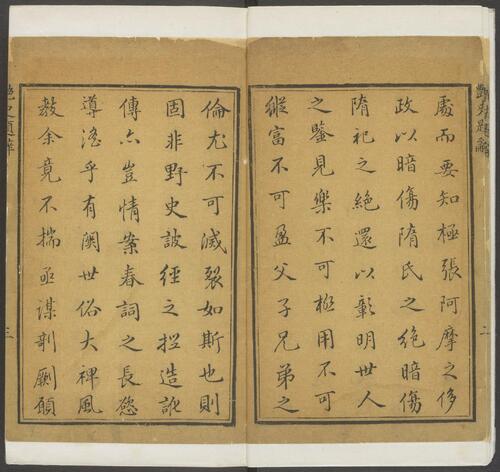 豔史題辭
處而要知極張阿摩之侈
政以暗傷隋氏之絶暗傷
隋祀之絶還以彰明世人
之鑒見樂不可極用不可
縱富不可盈父子兄弟之
二
倫尤不可滅裂如斯也則
固非野史詖經之揑造訛
傳亦豈情案春詞之長慾
導淫乎有闗世俗大裨風
教余竟不揣亟謀剞劂願
豔史題辭
三